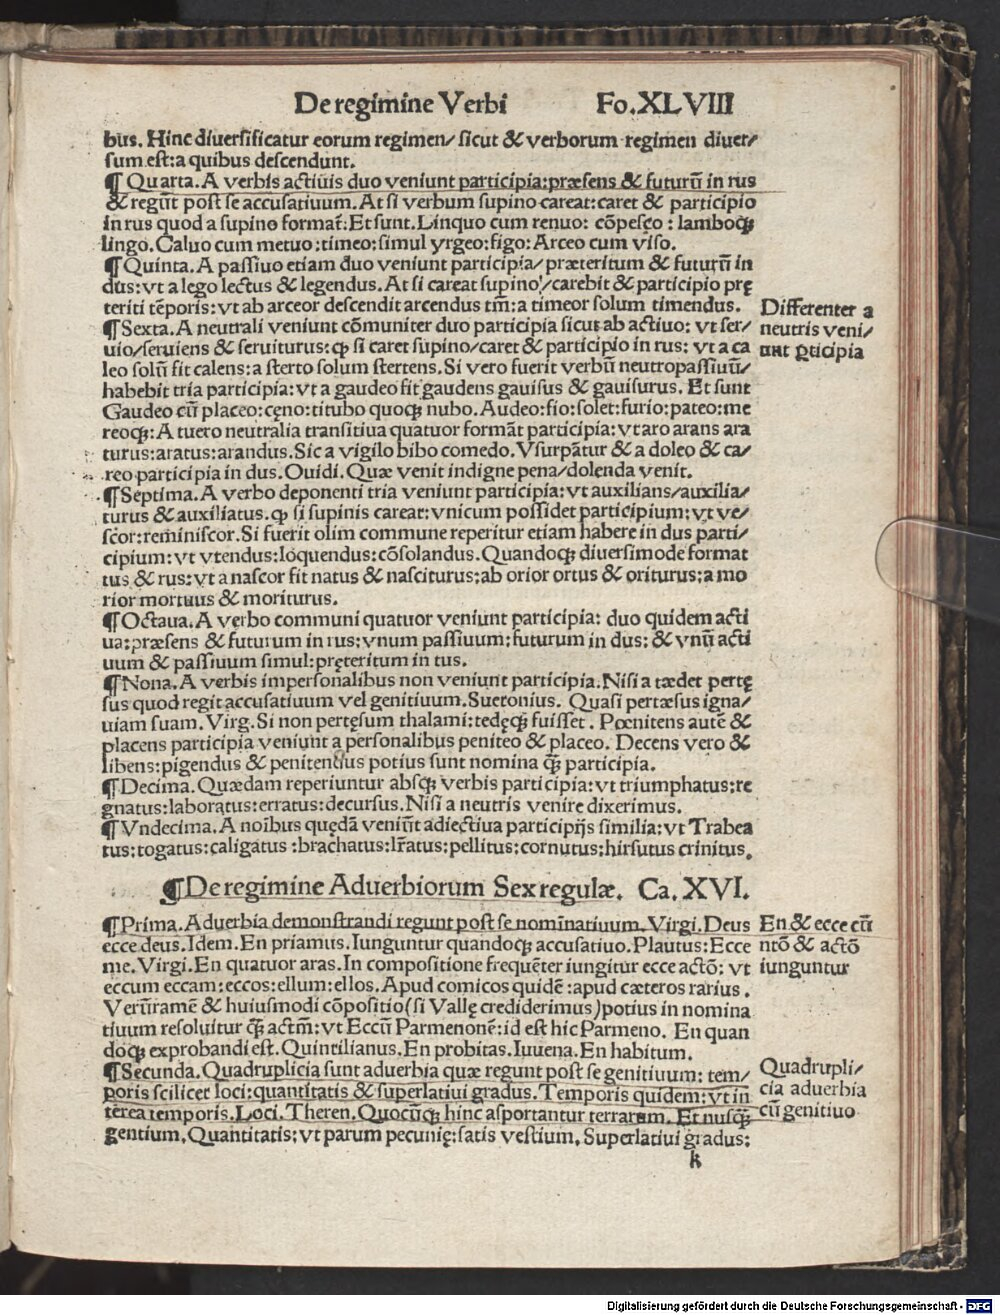 De regimine Verbi Fo. XLVIII
bus. Hinc diuersificatur eorum regimen/ sicut & verborum regimen diuer/
sum est: a quibus descendunt.
¶ Quarta. A verbis actiuis duo veniunt participia: præsens & futurū in rus
& regūt post se accusatiuum. At si verbum supino careat: caret & participio
in rus quod a supino format̄: Et sunt. Linquo cum renuo: cōpesco: lamboqꝫ
lingo. Caluo cum metuo: timeo: simul vrgeo: figo: Arceo cum viso.
¶ Quinta. A passiuo etiam duo veniunt participia/ præteritum & futurū in
dus: vt a lego lectus & legendus. At si careat supino/ carebit & participio prę
teriti tēporis: vt ab arceor descendit arcendus tm̄: a timeor solum timendus.
¶ Sexta. A neutrali veniunt cōmuniter duo participia sicut ab actiuo: vt ser/
uio/ seruiens & seruiturus: ꝙ si caret supino/ caret & participio in rus: vt a ca
leo solū fit calens: a sterto solum stertens. Si vero fuerit verbū neutropassiuū/
habebit tria participia: vt a gaudeo fit gaudens gauisus & gauisurus. Et sunt
Gaudeo cū placeo: cęno: titubo quoqꝫ nubo. Audeo: fio: solet: furio: pateo: me
reoqꝫ: A tuero neutralia transitiua quatuor formāt participia: vt aro arans ara
turus: aratus: arandus. Sic a vigilo bibo comedo. Vsurpātur & a doleo & ca/
reo participia in dus. Ouidi. Quæ venit indigne pena/ dolenda venit.
¶ Septima. A verbo deponenti tria veniunt participia: vt auxilians/ auxilia/
turus & auxiliatus. ꝙ si supinis careat: vnicum possidet participium: vt ve/
scor: reminiscor. Si fuerit olim commune reperitur etiam habere in dus parti/
cipium: vt vtendus: loquendus: cōsolandus. Quandoqꝫ diuersimode format
tus & rus: vt a nascor fit natus & nasciturus: ab orior ortus & oriturus: a mo
rior mortuus & moriturus.
¶ Octaua. A verbo communi quatuor veniunt participia: duo quidem acti
ua: præsens & futurum in rus: vnum passiuum: futurum in dus: & vnū acti
uum & passiuum simul: pręteritum in tus.
¶ Nona. A verbis impersonalibus non veniunt participia. Nisi a tædet pertę
sus quod regit accusatiuum vel genitiuum. Suetonius. Quasi pertæsus igna/
uiam suam. Virg. Si non pertęsum thalami: tedęqꝫ fuisset. Pœnitens autē &
placens participia veniunt a personalibus peniteo & placeo. Decens vero &
libens: pigendus & penitendus potius sunt nomina q̄ꝫ participia.
¶ Decima. Quædam reperiuntur absqꝫ verbis participia: vt triumphatus: re
gnatus: laboratus: erratus: decursus. Nisi a neutris venire dixerimus.
¶ Vndecima. A noībus quędā veniūt adiectiua participijs similia: vt Trabea
tus: togatus: caligatus: brachatus: lr̄atus: pellitus: cornutus: hirsutus crinitus.
Differenter a
neutris veni/
unt ꝑticipia
¶ De regimine Aduerbiorum Sex regulæ. Ca. XVI.
¶ Prima. Aduerbia demonstrandi regunt post se nominatiuum. Virgi. Deus
ecce deus. Idem. En priamus. Iunguntur quandoqꝫ accusatiuo. Plautus: Ecce
me. Virgi. En quatuor aras. In compositione frequēter iungitur ecce actō: vt
eccum eccam: eccos: ellum: ellos. Apud comicos quidē: apud cæteros rarius.
Verūtamē & huiusmodi cōpositio (si Vallę crediderimus) potius in nomina
tiuum resoluitur q̄ꝫ actm̄: vt Eccū Parmenonē: id est hic Parmeno. En quan
doqꝫ exprobandi est. Quintilianus. En probitas. Iuuena. En habitum.
¶ Secunda. Quadruplicia sunt aduerbia quæ regunt post se genitiuum: tem/
poris scilicet loci: quantitatis & superlatiui gradus. Temporis quidem: vt in
terea temporis. Loci. Theren. Quocūqꝫ hinc asportantur terrarum. Et nusq̄ꝫ
gentium. Quantitatis: vt parum pecunię: satis vestium. Superlatiui gradus:
En & ecce cū
ntō & actō
iunguntur
Quadrupli/
cia aduerbia
cū genitiuo
k
Digitalisierung gefördert durch die Deutsche Forschungsgemeinschaft - DFG